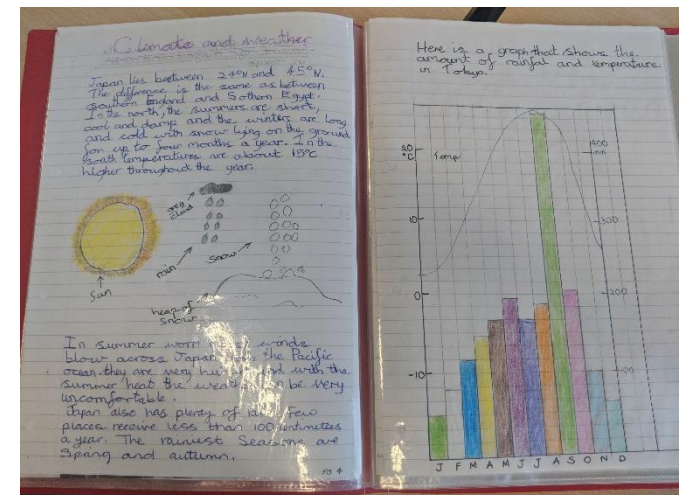 Climate and Weather
Japan lies between 24°N and 45°N.
The difference is the same as between
southern England and Sothern Egypt.
In the north, the summers are short,
cool and damp and the winters are long
and cold with snow lying on the ground
for up to four months a year. In the
south temperatures are about 15°C
higher throughout the year.
grey
cloud
rain
snow
Sun
heap of
snow
In summer winds
blow across Japan the Pacific
ocean, they are very and with the
summer heat the be very
uncomfortable.
Japan also has plenty of Few
places receive less than 100 centimetres
a year. The rainiest Seasons are
Spring and autumn.
pg 4
Here is a graph that shows the
amount of rainfall and temperature
in Tokyo.
°C
Temp.
400
mm
10
300
0
200
-10
J F M A M J J A S O N D